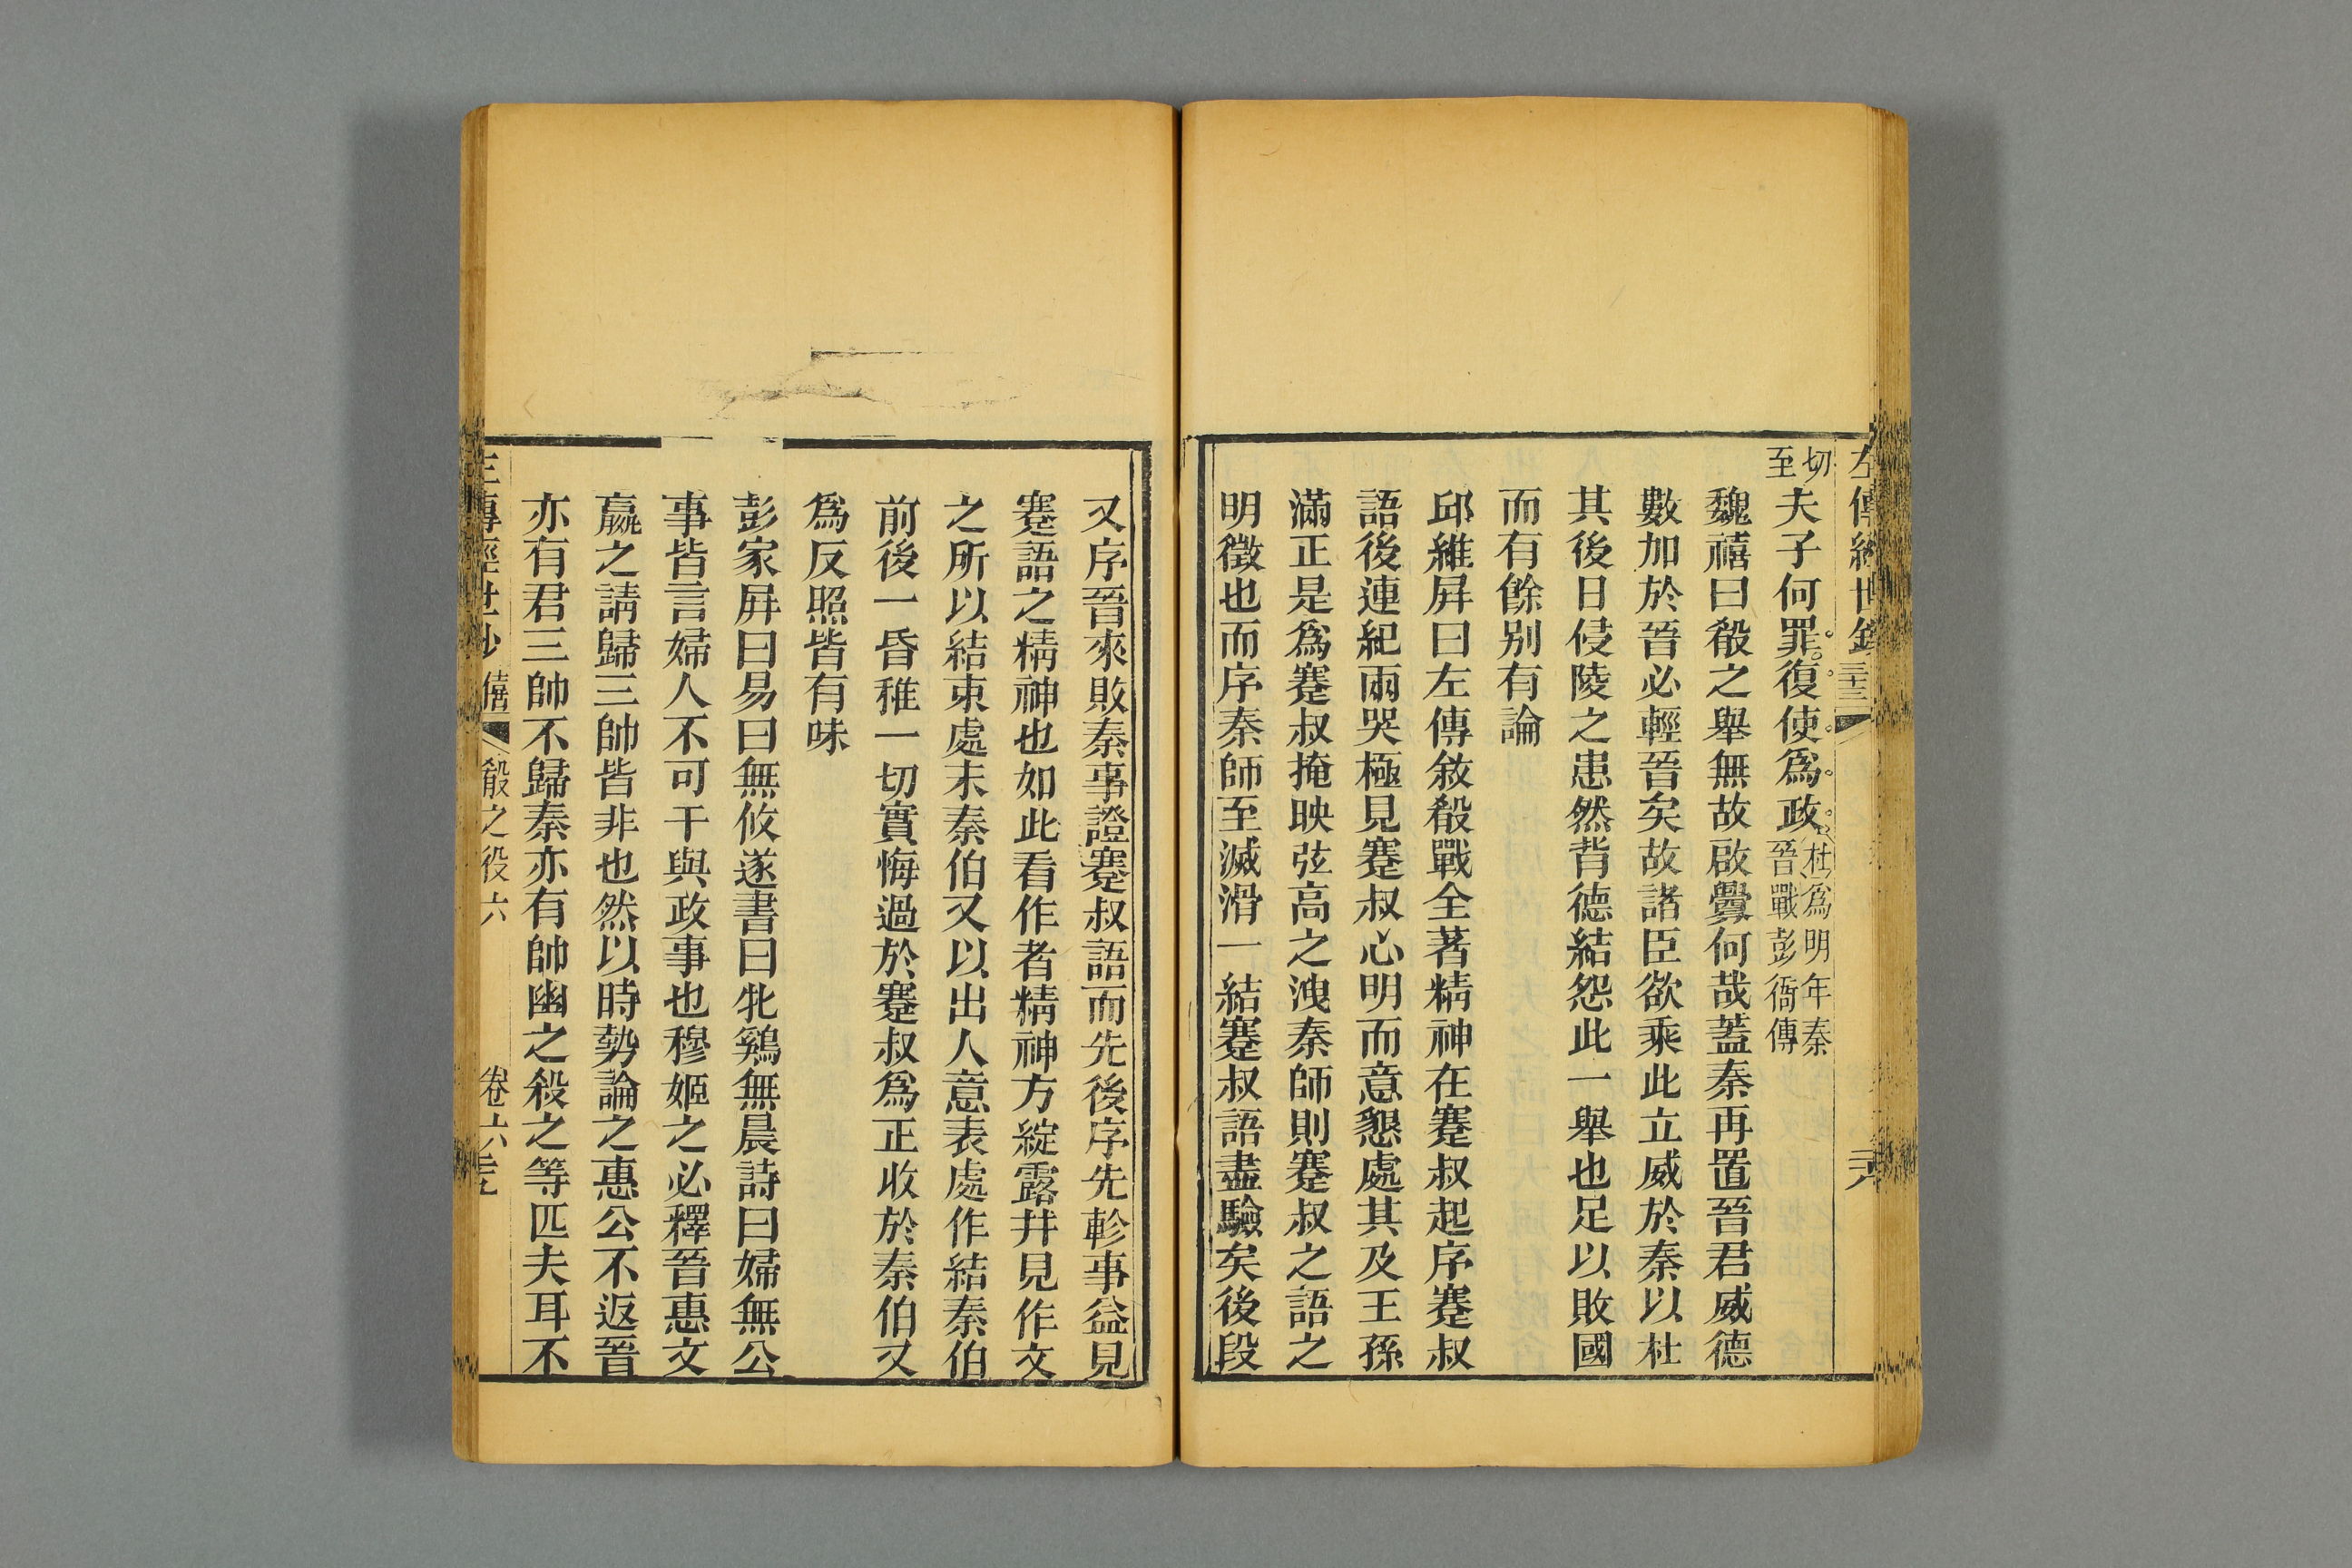 切至夫子何罪復使爲政杜爲明年秦晉戰彭衙傳
魏禧曰殽之舉無故啟釁何哉蓋秦再置晉君威德
數加於晉必輕晉矣故諸臣欲乘此立威於秦以杜
其後日侵陵之患然背德結怨此一舉也足以敗國
而有餘别有論
邱維屏曰左傳敘殽戰全著精神在蹇叔起序蹇叔
語後連紀兩哭極見蹇叔心明而意懇處其及王孫
滿正是爲蹇叔掩映弦高之洩秦師則蹇叔之語之
明徵也而序秦師至滅滑一結蹇叔語盡驗矣後段
又序晉來敗秦事證蹇叔語而先後序先軫事益見
蹇語之精神也如此看作者精神方綻露井見作文
之所以結束處末秦伯又以出人意表處作結秦伯
前後一昏稚一切實悔過於蹇叔爲正收於秦伯又
爲反照皆有味
彭家屛曰易曰無攸遂書曰牝鷄無晨詩曰婦無公
事皆言婦人不可干與政事也穆姬之必釋晉惠文
嬴之請歸三帥皆非也然以時勢論之惠公不返晉
亦有君三帥不歸秦亦有帥幽之殺之等匹夫耳不
左傳經世鈔 僖 殽之役六 卷六